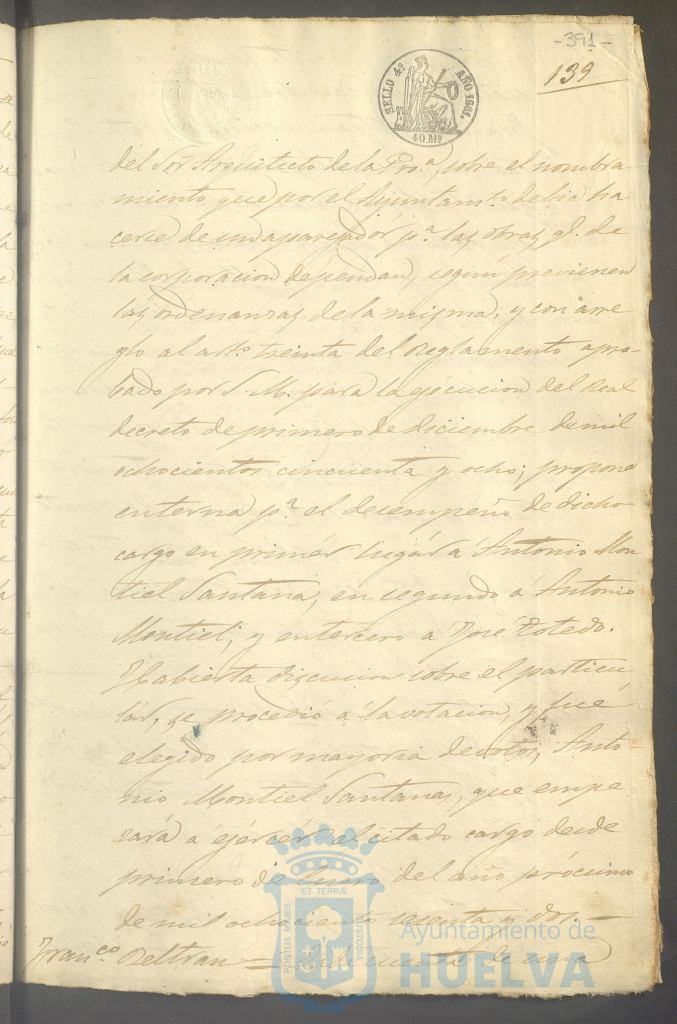 -391-
139
SELLO 4º AÑO 1861.
40 Mˢ
del Sor Arquitecto de la Proª, sobre el nombra-
miento que por el Ayuntamto debia ha
cerse de un aparejador pª las obras q. de
la corporacion dependan, segun previenen
las ordenanzas de la misma, y con arre
glo al arto treinta del Reglamento apro-
bado por S. M. para la ejecucion del Real
decreto de primero de diciembre de mil
ochocientos cincuenta y ocho; propone
en terna pª el desempeño de dicho
cargo en primer lugar á Antonio Mon
tiel Santana, en segundo á Antonio
Montiel; y en tercero a José Toledo.
Habierta discucion sobre el particu
lar, se procedió a la votacion, y fue
elegido por mayoria de votos, Anto-
nio Montiel Santana, que empe
zará a ejercer el citado cargo desde
primero de Enero del año prócsimo
de mil ochocientos sesenta y dos.=
Franco Beltran = dada cuenta de una
PORTUS MARIS ET TERRÆ CUSTODIA
Ayuntamiento de
HUELVA